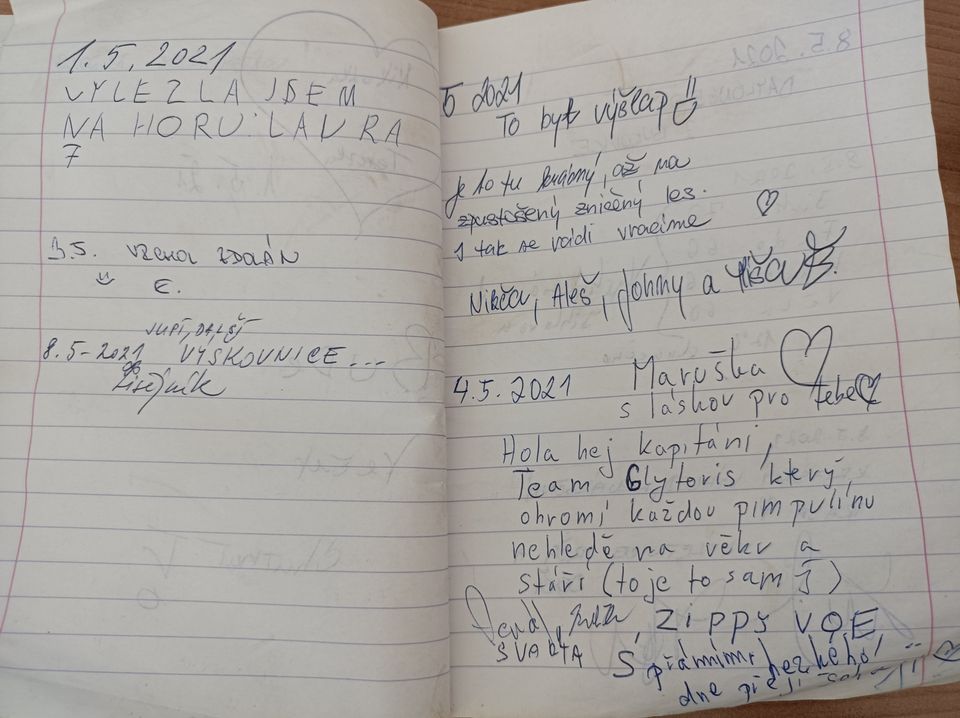 1.5.2021
VYLEZLA JSEM
NA HORU: LAURA
7
3.5.
E.
JUPÍ, DALŠÍ
8.5-2021 VÝŠKOVNICE...
5 2021
To byl výšlap
je to tu krásný, až na
zpustošený zničený les.
I tak se rádi vracíme
Nikča, Aleš, Johny a
4.5.2021 Maruška
s láskou pro tebe
Hola hej kapitáni,
Team Glytoris který
ohromí každou pimpulínu
nehledě na věku a
stáří (to je to samý)
ZIPPY VOE
ŠVARTA
S přáním hezkého
dne přejí